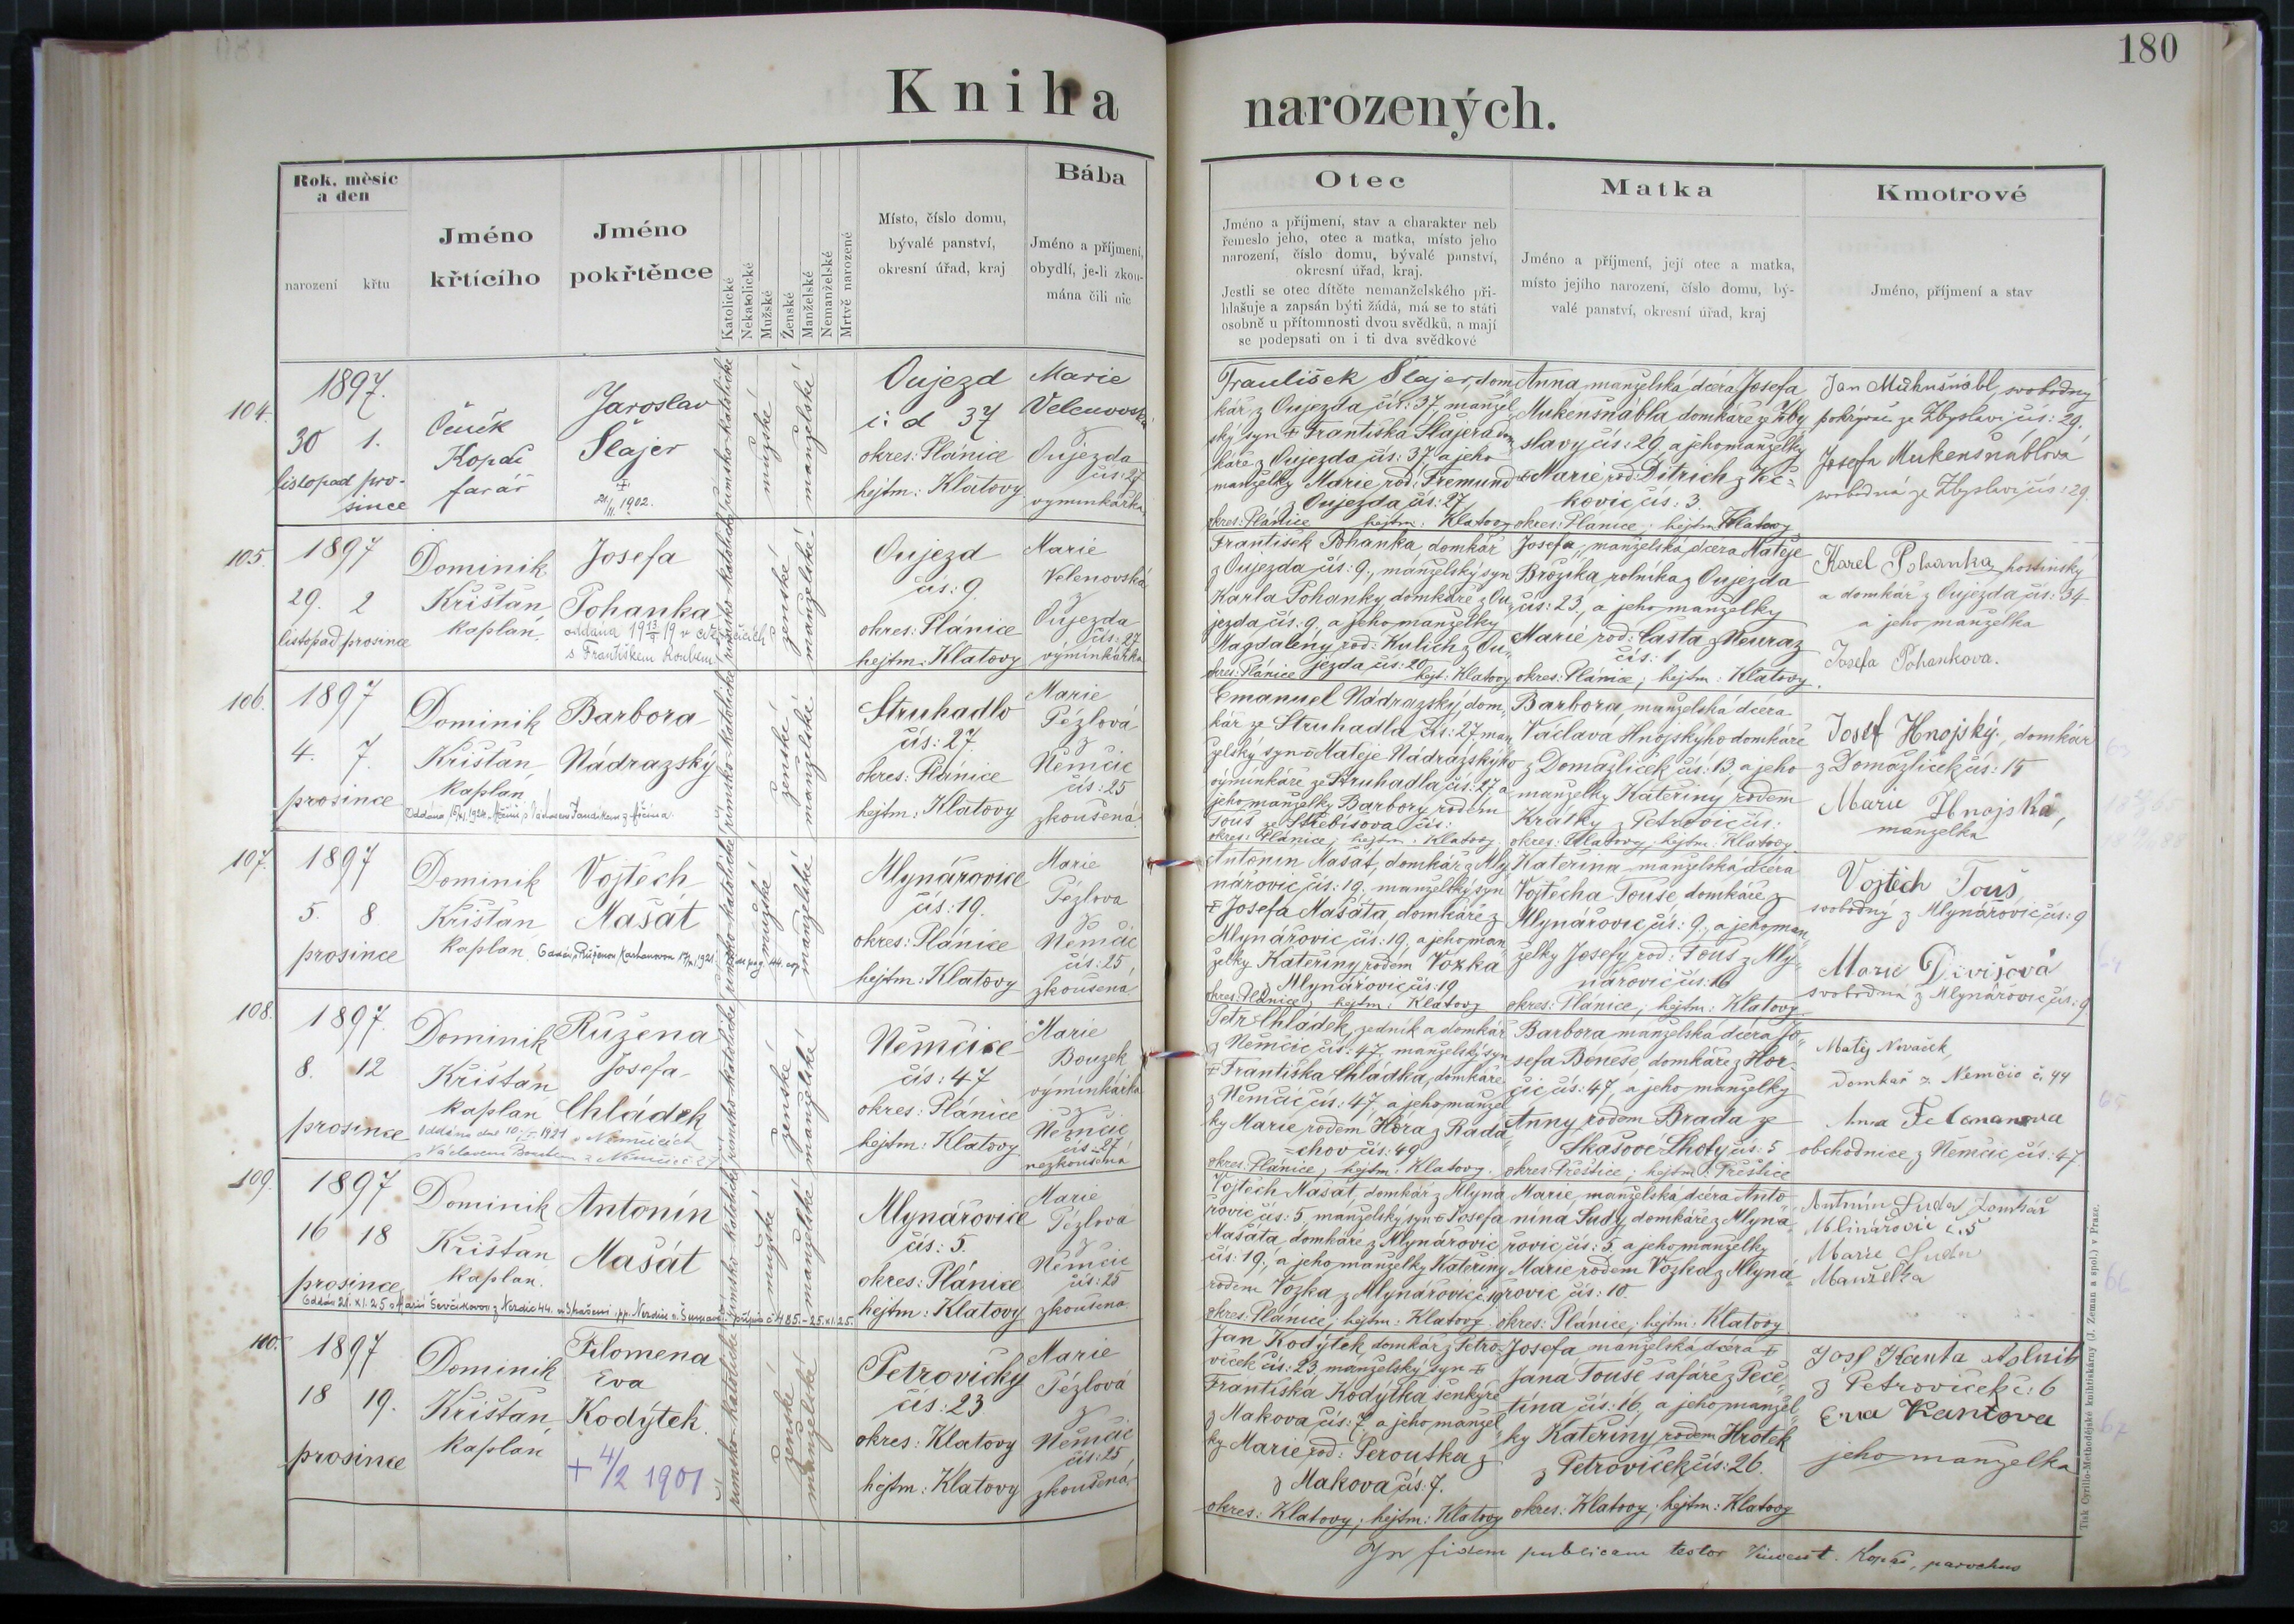 180
Kniha narozených.
Rok, měsíc
a den
narození křtu
Jméno
křtícího
Jméno
pokřtěnce
Katolické
Nekatolické
Mužské
Ženské
Manželské
Nemanželské
Mrtvě narozené
Místo, číslo domu,
bývalé panství,
okresní úřad, kraj
Bába
Jméno a příjmení,
obydlí, je-li zkou-
mána čili nic
Otec
Jméno a příjmení, stav a charakter neb
řemeslo jeho, otec a matka, místo jeho
narození, číslo domu, bývalé panství,
okresní úřad, kraj.
Jestli se otec dítěte nemanželského při-
hlašuje a zapsán býti žádá, má se to státi
osobně u přítomnosti dvou svědků, a mají
se podepsati on i ti dva svědkové
Matka
Jméno a příjmení, její otec a matka,
místo jejího narození, číslo domu, bý-
valé panství, okresní úřad, kraj
Kmotrové
Jméno, příjmení a stav
104.
1897.
30 1.
listopad pro-
since
Čeněk
Kopáč
farář
Jaroslav
Šlajer
1902.
římsko-katolické
mužské
manželské
Oujezd
37
okres: Plánice
hejtm: Klatovy
Marie
Velenovská
z
Oujezda
čís: 27
výminkářka
František Šlajer, dom
kář z Oujezda čís: 37, manžel
ský syn † Františka Šlajera dom
káře z Oujezda čís: 37 a jeho
manželky Marie rod: Fremund
z Oujezda čís: 27
okres: Plánice hejtm: Klatovy
Anna manželská dcera Josefa
Mukenšnábla, domkáře ze Zby
slavy čís: 29, a jeho manželky
Marie rod: Ditrich z Kč-
kovic čís: 3.
okres: Plánice; hejtm: Klatovy
Jan Mukenšnábl, svobodný
pokrývač ze Zbyslavi čís: 29.
Josefa Mukenšnáblová
svobodná ze Zbyslavi čís: 29.
105.
1897
29. 2
listopad prosince
Dominik
Křišťan
kaplan.
Josefa
Pohanka
s Františkem
římsko-katolické
ženské
manželské
Oujezd
čís: 9.
okres: Plánice
hejtm: Klatovy
Marie
Velenovská
z
Oujezda
čís: 27
výminkářka
František Pohanka, domkář
z Oujezda čís: 9., manželský syn
Karla Pohanky domkáře z Ou
jezda čís: 9, a jeho manželky
Magdaleny rod: Kulich z Ou
jezda čís: 20
okres: Plánice hejt: Klatovy
Josefa, manželská dcera Matěje
Brožíka rolníka z Oujezda
čís: 23, a jeho manželky
Marie rod: Částa z Neuraz
čís: 1
okres: Plánice; hejtm: Klatovy.
Karel Pohanka hostinský
a domkář z Oujezda čís: 34
a jeho manželka
Josefa Pohankova.
106.
1897
4. 7.
prosince
Dominik
Křišťan
kaplan
Barbora
Nádrazský
římsko-katolické
ženské
manželské
Struhadlo
čís: 27.
okres: Plánice
hejtm: Klatovy
Marie
Pézlová
z
Němčic
čís: 25
zkoušená
Emanuel Nádrazský dom-
kář ze Struhadla čís: 27 man
želský syn Matěje Nádrazského
výminkáře ze Struhadla čís: 27, a
jeho manželky Barbory rodem
Touš ze Střebišova čís:
okres: Plánice, hejtm: Klatovy
Barbora, manželská dcera
Václava Hnojskýho domkáře
z Domažliček čís: 13, a jeho
manželky Kateřiny rodem
Krátky z Petrovic čís:
okres: Klatovy, hejtm: Klatovy.
Josef Hnojský, domkář
z Domažliček čís: 15
Marie Hnojská,
manželka
107.
1897
5. 8.
prosince
Dominik
Křišťan
kaplan.
Vojtěch
Mašát
římsko-katolické
mužské
manželské
Mlynářovice
čís: 19.
okres: Plánice
hejtm: Klatovy
Marie
Pézlova
z
Němčic
čís: 25,
zkoušená.
Antonín Mašát, domkář z Mly
nářovic, čís: 19, manželský syn
† Josefa Mašáta, domkáře z
Mlynářovic čís: 19, a jeho man
želky Kateřiny rodem Vozka
z Mlynářovic čís: 19
okres: Plánice hejtm: Klatovy
Kateřina manželská dcera
Vojtěcha Touše domkáře z
Mlynářovic čís: 9, a jeho man
želky Josefy rod: Touš z Mly-
nářovic čís: 16
okres: Plánice; hejtm: Klatovy.
Vojtěch Touš
svobodný z Mlynářovic čís: 9
Marie Divišová
svobodná z Mlynářovic čís: 9
108.
1897.
8. 12
prosince
Dominik
Křišťan
kaplan
Růžena
Josefa
Chládek
římsko-katolické
ženské
manželské
Němčice
čís: 47
okres: Plánice
hejtm: Klatovy
Marie
Bouzek
výminkářka
z
Němčic
čís: 27
nezkoušená
Petr Chládek, zedník a domkář
z Němčic čís: 47, manželský syn
† Františka Chládka, domkáře
z Němčic čís: 47, a jeho manžel
ky Marie rodem Hora z Rada
chov čís: 49
okres: Plánice; hejtm: Klatovy.
Barbora manželská dcera Jo-
sefa Beneše, domkáře z Hor-
čic čís: 47, a jeho manželky
Anny rodem Brada ze
Skašové Lhoty čís: 5
okres: Přeštice; hejtm: Přeštice
Matěj Nováček,
domkář z Němčic č. 44
Anna
obchodnice z Němčic čís: 47.
109.
1897
16 18
prosince
Dominik
Křišťan
kaplan.
Antonín
Mašát
římsko-katolické
mužské
manželské
Mlynářovice
čís: 5.
okres: Plánice
hejtm: Klatovy
Marie
Pézlová
z
Němčic
čís: 25
zkoušena.
Vojtěch Mašát, domkář z Mlyná
řovic čís: 5, manželský syn † Josefa
Mašáta, domkáře z Mlynářovic
čís: 19, a jeho manželky Kateřiny
rodem Vozka z Mlynářovic č. 19
okres: Plánice; hejtm: Klatovy.
Marie, manželská dcera Anto-
nína Sudy, domkáře z Mlyná-
řovic čís: 5, a jeho manželky
Marie rodem Vozka z Mlyná
řovic čís: 10.
okres: Plánice; hejtm: Klatovy
Antonín Suda domkář
Mlinářovic č. 5
Marie Suda
Manželka
110.
1897
18 19.
prosince
Dominik
Křišťan
kaplan
Filomena
Eva
Kodýtek.
+ 4/2 1901
římsko-katolické
ženské
manželské
Petrovičky
čís: 23
okres: Klatovy
hejtm: Klatovy
Marie
Pézlová
z
Němčic
čís: 25
zkoušená
Jan Kodýtek domkář z Petro-
viček čís: 23 manželský syn †
Františka Kodýtka šenkýře
z Makova čís: 7, a jeho manžel
ky Marie rod: Perouška z
z Makova čís: 7.
okres: Klatovy; hejtm: Klatovy
Josefa manželská dcera †
Jana Touše šafáře z Peče
tína čís: 16, a jeho manžel
ky Kateřiny rodem Hrotek
z Petroviček čís: 26.
okres: Klatovy; hejtm: Klatovy
Josef Kanta rolník
z Petroviček č: 6
Eva Kantova
jeho manželka
In fidem publicam testor Vincent. Kopáč, parochus
Tisk Cyrillo-Methodějské knihtiskárny (J. Zeman a spol.) v Praze.